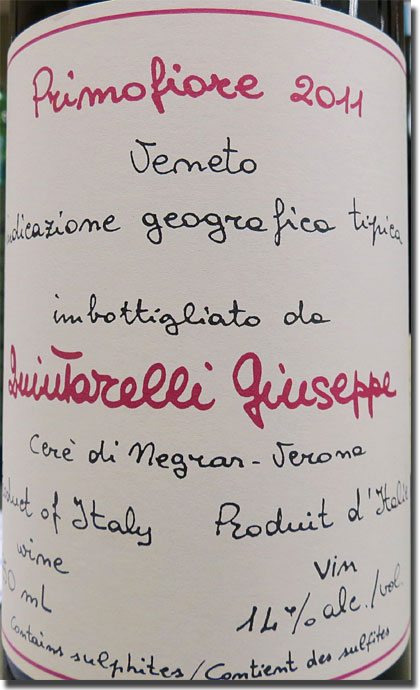 Primofiore 2011
Veneto
indicazione geografica tipica
imbottigliato da
Quintarelli Giuseppe
Cerè di Negrar - Verona
Product of Italy
Produit d'Italie
wine
Vin
750 mL
14% alc./vol.
Contains sulphites/Contient des sulfites